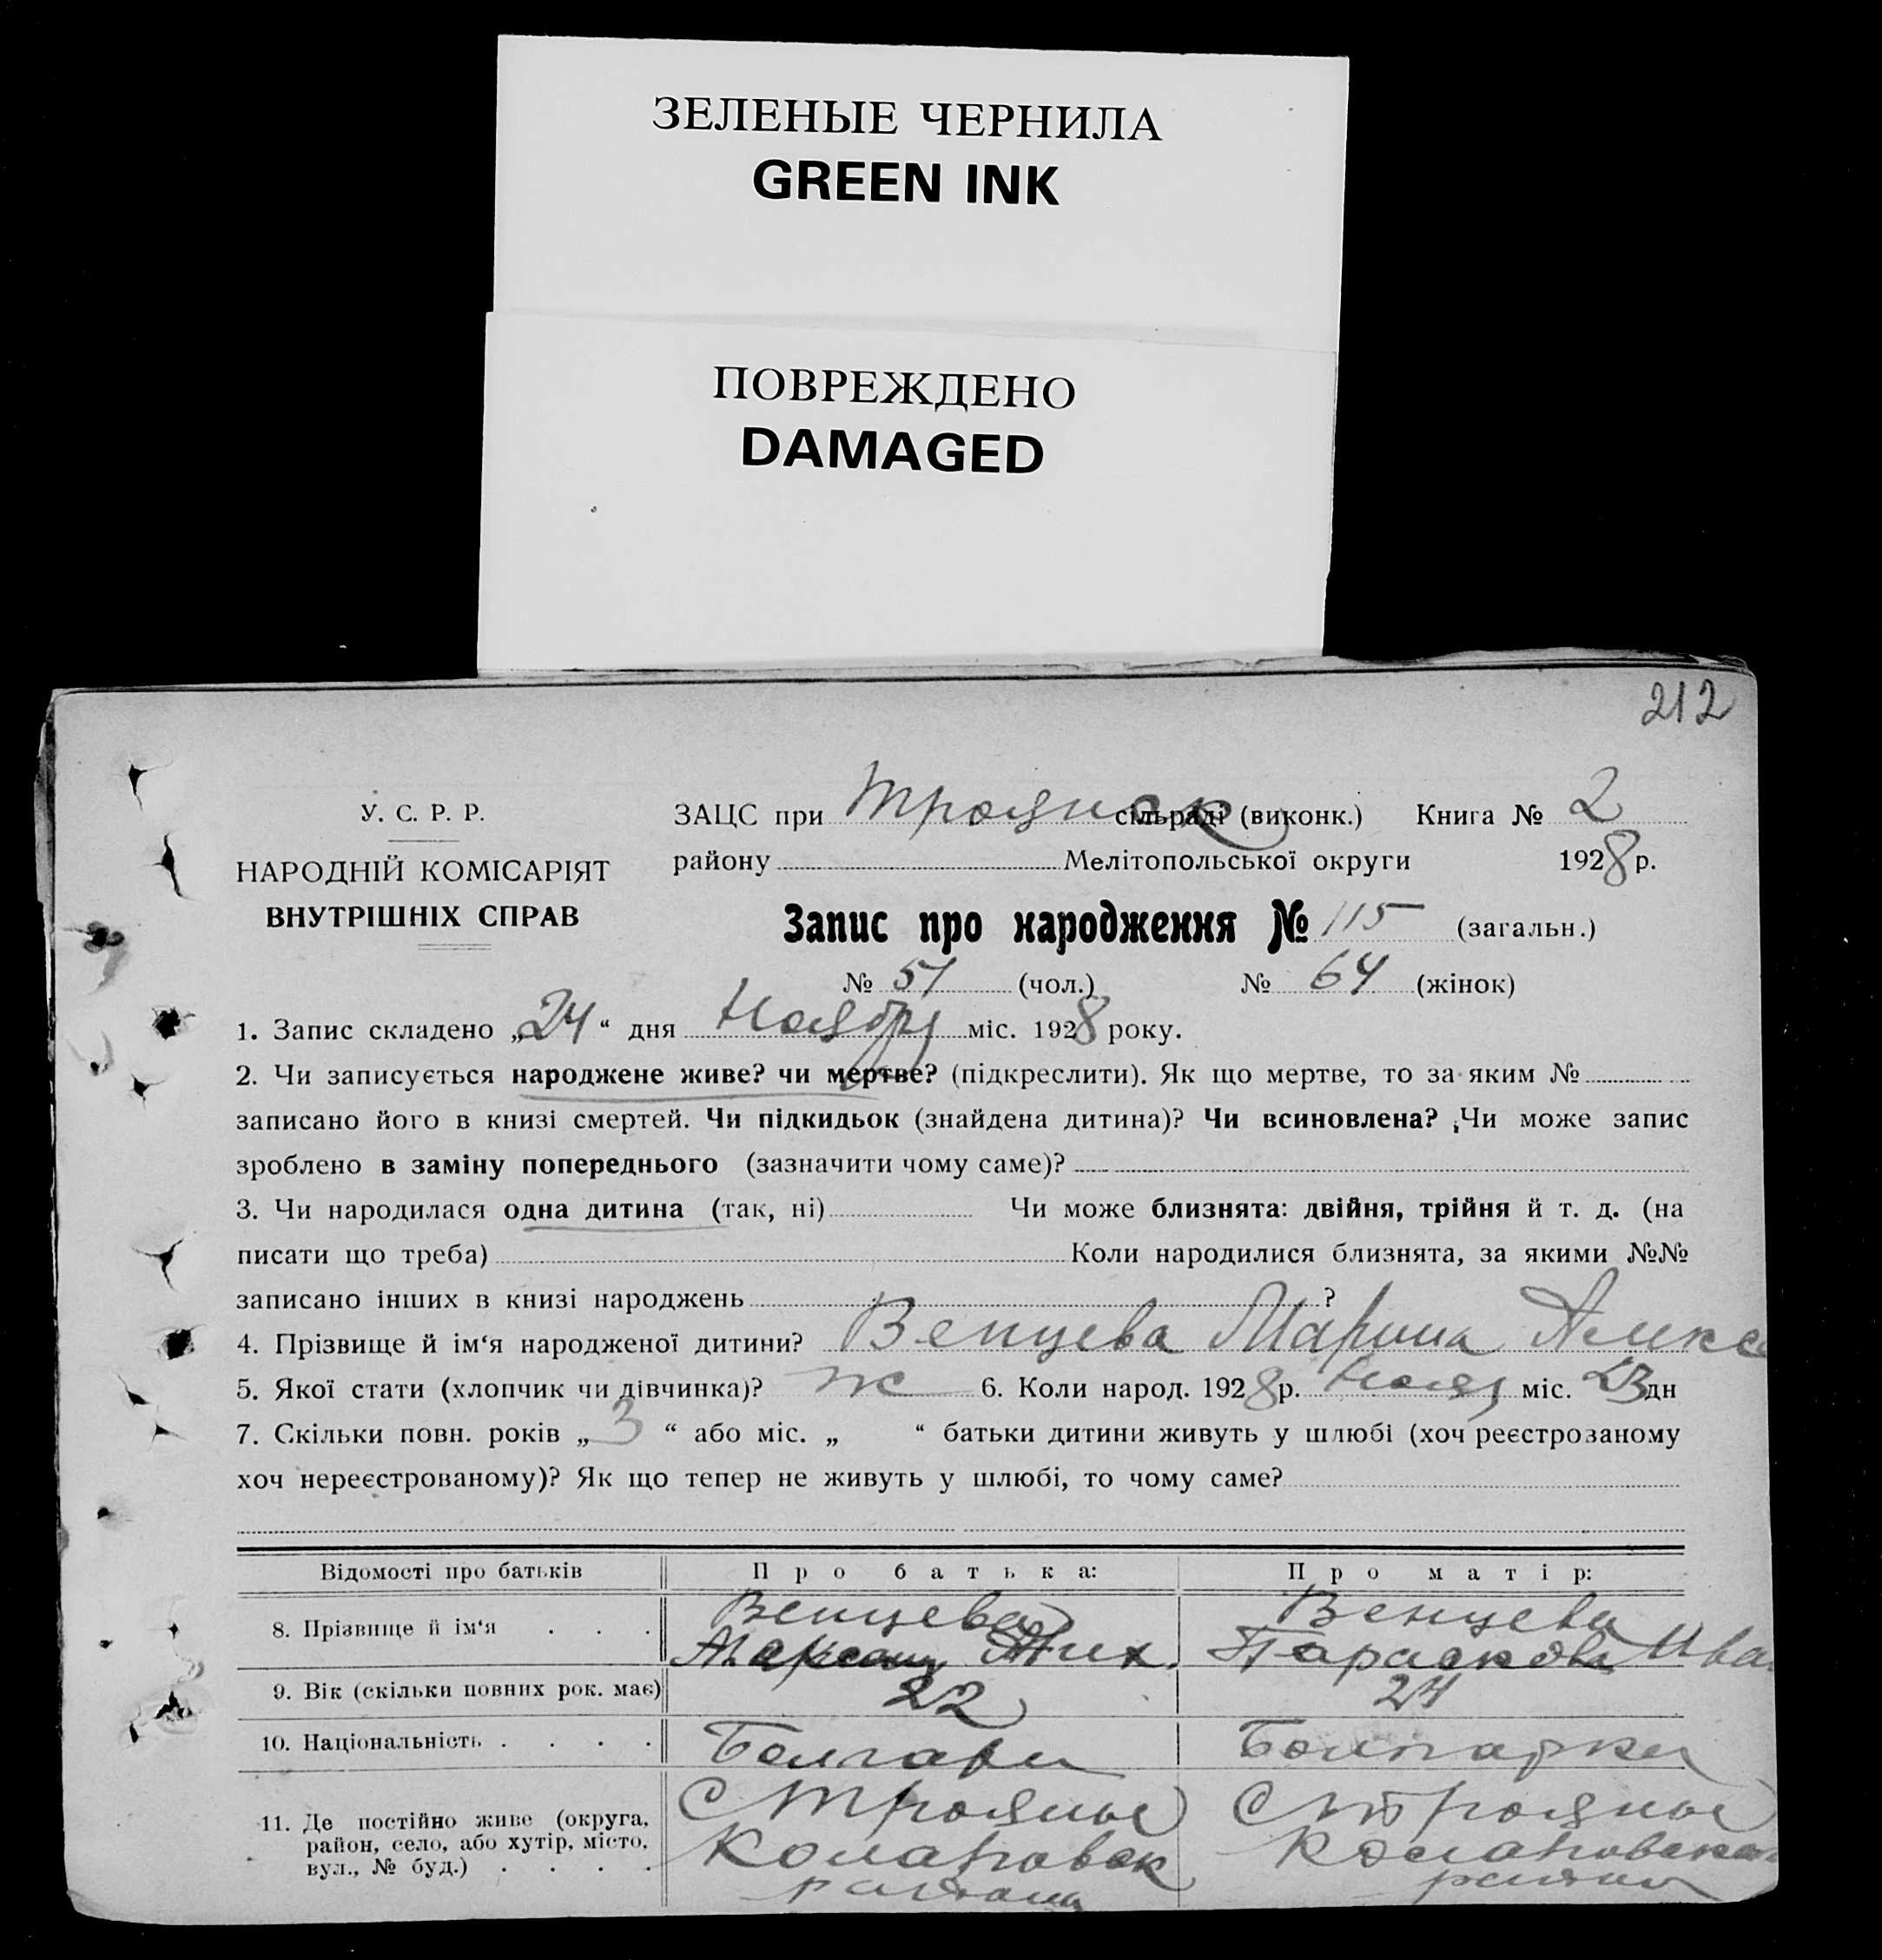 ЗЕЛЕНЫЕ ЧЕРНИЛА
GREEN INK
ПОВРЕЖДЕНО
DAMAGED
212
У. С. Р. Р.
НАРОДНІЙ КОМІСАРІЯТ
ВНУТРІШНІХ СПРАВ
ЗАЦС при Троянск сільраді (виконк.) Книга № 2
району Мелітопольської округи 1928 р.
Запис про народження № 115 (загальн.)
№ 51 (чол.) № 64 (жінок)
1. Запис складено „24“ дня Ноября міс. 1928 року.
2. Чи записується народжене живе? чи мертве? (підкреслити). Як що мертве, то за яким №
записано його в книзі смертей. Чи підкидьок (знайдена дитина)? Чи всиновлена? Чи може запис
зроблено в заміну попереднього (зазначити чому саме)?
3. Чи народилася одна дитина (так, ні) Чи може близнята: двійня, трійня й т. д. (на
писати що треба) Коли народилися близнята, за якими №№
записано інших в книзі народжень ?
4. Прізвище й ім‘я народженої дитини? Венцева Марина
5. Якої стати (хлопчик чи дівчинка)? ж 6. Коли народ. 1928 р. міс. 23 дн
7. Скільки повн. років „3“ або міс. „ “ батьки дитини живуть у шлюбі (хоч реєстрозаному
хоч нереєстрованому)? Як що тепер не живуть у шлюбі, то чому саме?
Відомості про батьків Про батька: Про матір:
8. Прізвище й ім‘я . . . Венцева Венцева
Парасковя Ива
9. Вік (скільки повних рок. має) 22 24
10. Національність . . . . Болгари Болгарка
11. Де постійно живе (округа, С Трояны С Трояны
район, село, або хутір, місто, Коларовск
вул., № буд.) . . . . района района